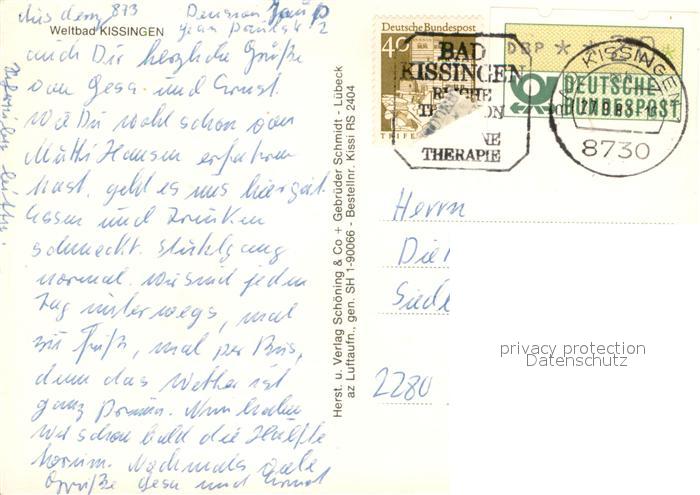 Aus dem 873 Pension
Jean Paulstr 2
Weltbad KISSINGEN
auch Dir herzliche Grüße
von Gesa und Ernst.
Wie Du wohl schon von
Mutti Hansen erfahren
hast, geht es uns hier gut.
Essen und Trinken
schmeckt. Stuhlgang
normal. Wir sind jeden
Tag unterwegs, mal
zu Fuß, mal per Bus,
denn das Wetter ist
ganz prima. Nun haben
wir schon bald die Hälfte
herum. Nochmals viele
Grüße Gesa und Ernst
Herst. u. Verlag Schöning & Co + Gebrüder Schmidt - Lübeck
az Luftaufn., gen. SH 1-90066 - Bestellnr. Kissi RS 2404
Deutsche Bundespost
40
TRIFE
BAD
KISSINGEN
THERAPIE
DBP
DEUTSCHE
BUNDESPOST
KISSINGEN
8730
Herrn
Diet
Siede
2280
privacy protection
Datenschutz